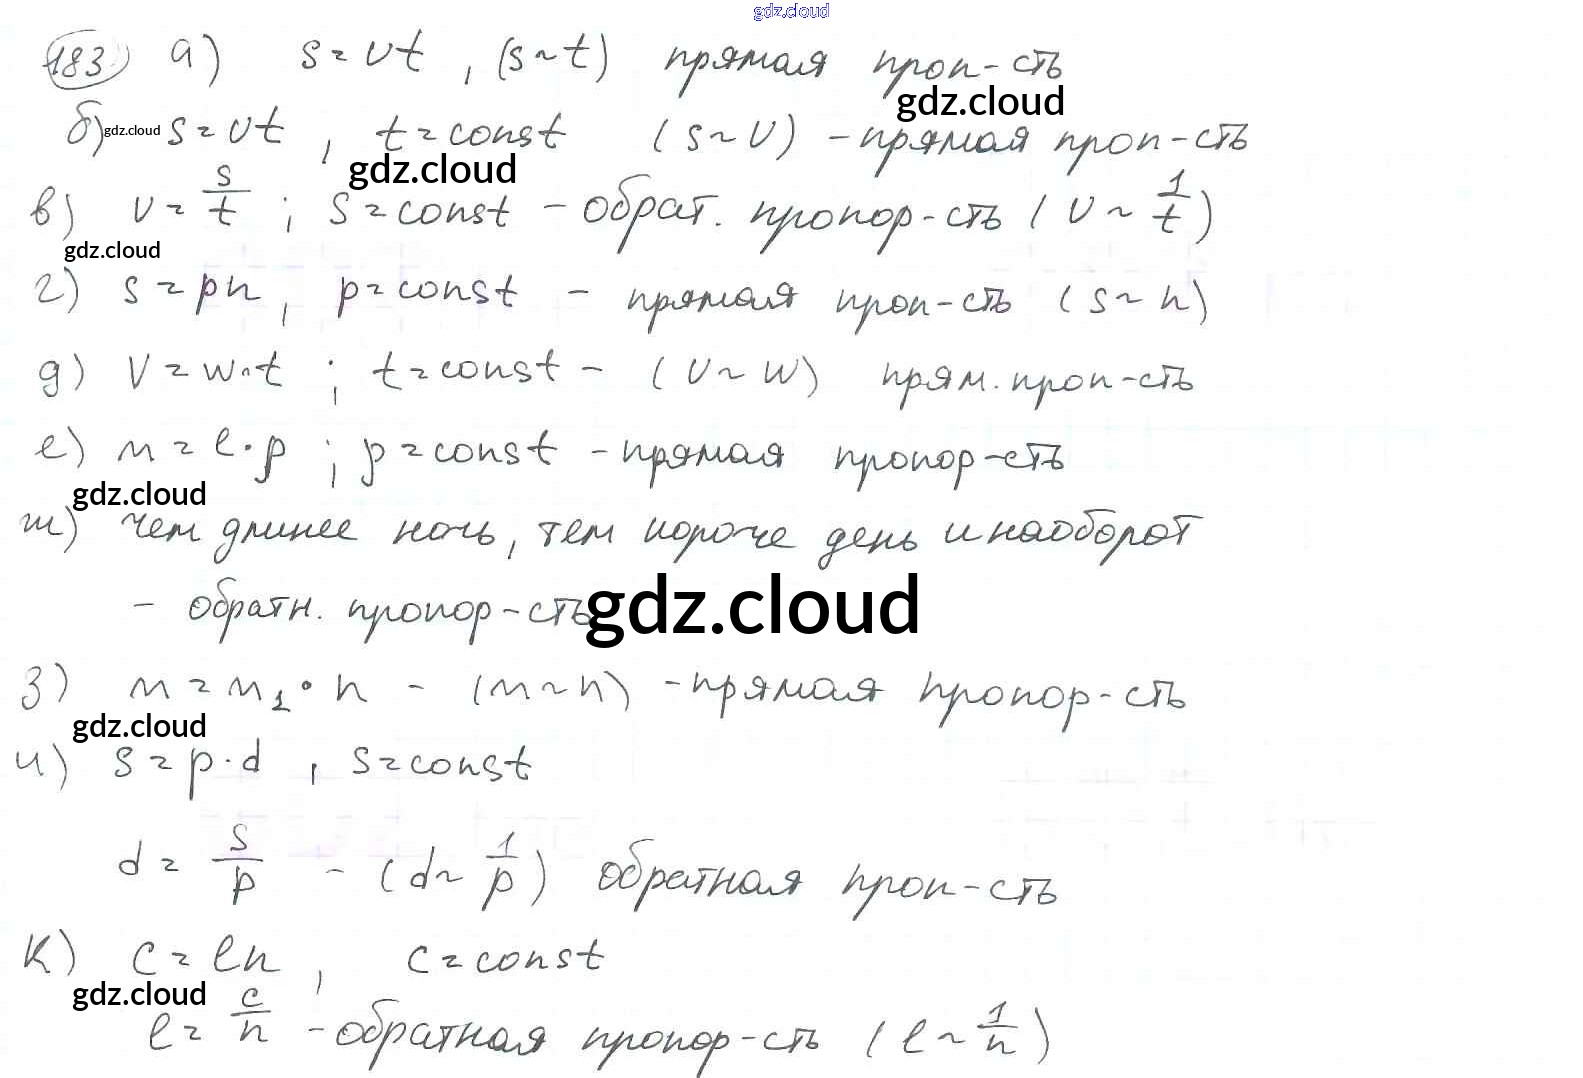 gdz.cloud
183 а) s = vt, (s ~ t) прямая проп-сть
gdz.cloud
б) gdz.cloud s = vt, t = const (s ~ v) - прямая проп-сть
gdz.cloud
в) v = s/t ; s = const - обрат. пропор-сть (v ~ 1/t)
gdz.cloud
г) s = pn, p = const - прямая проп-сть (s ~ n)
д) V = w·t ; t = const - (v ~ w) прям. проп-сть
е) m = l·p ; p = const - прямая пропор-сть
gdz.cloud
ж) чем длинее ночь, тем короче день и наоборот
- обратн. пропор-сть gdz.cloud
з) m = m₁·n - (m ~ n) - прямая пропор-сть
gdz.cloud
и) s = p·d, s = const
d = s/p - (d ~ 1/p) обратная проп-сть
к) c = ln, c = const
gdz.cloud
l = c/n - обратная пропор-сть (l ~ 1/n)